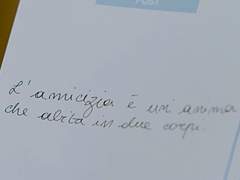 POST
L'amicizia è un anima
che abita in due corpi.